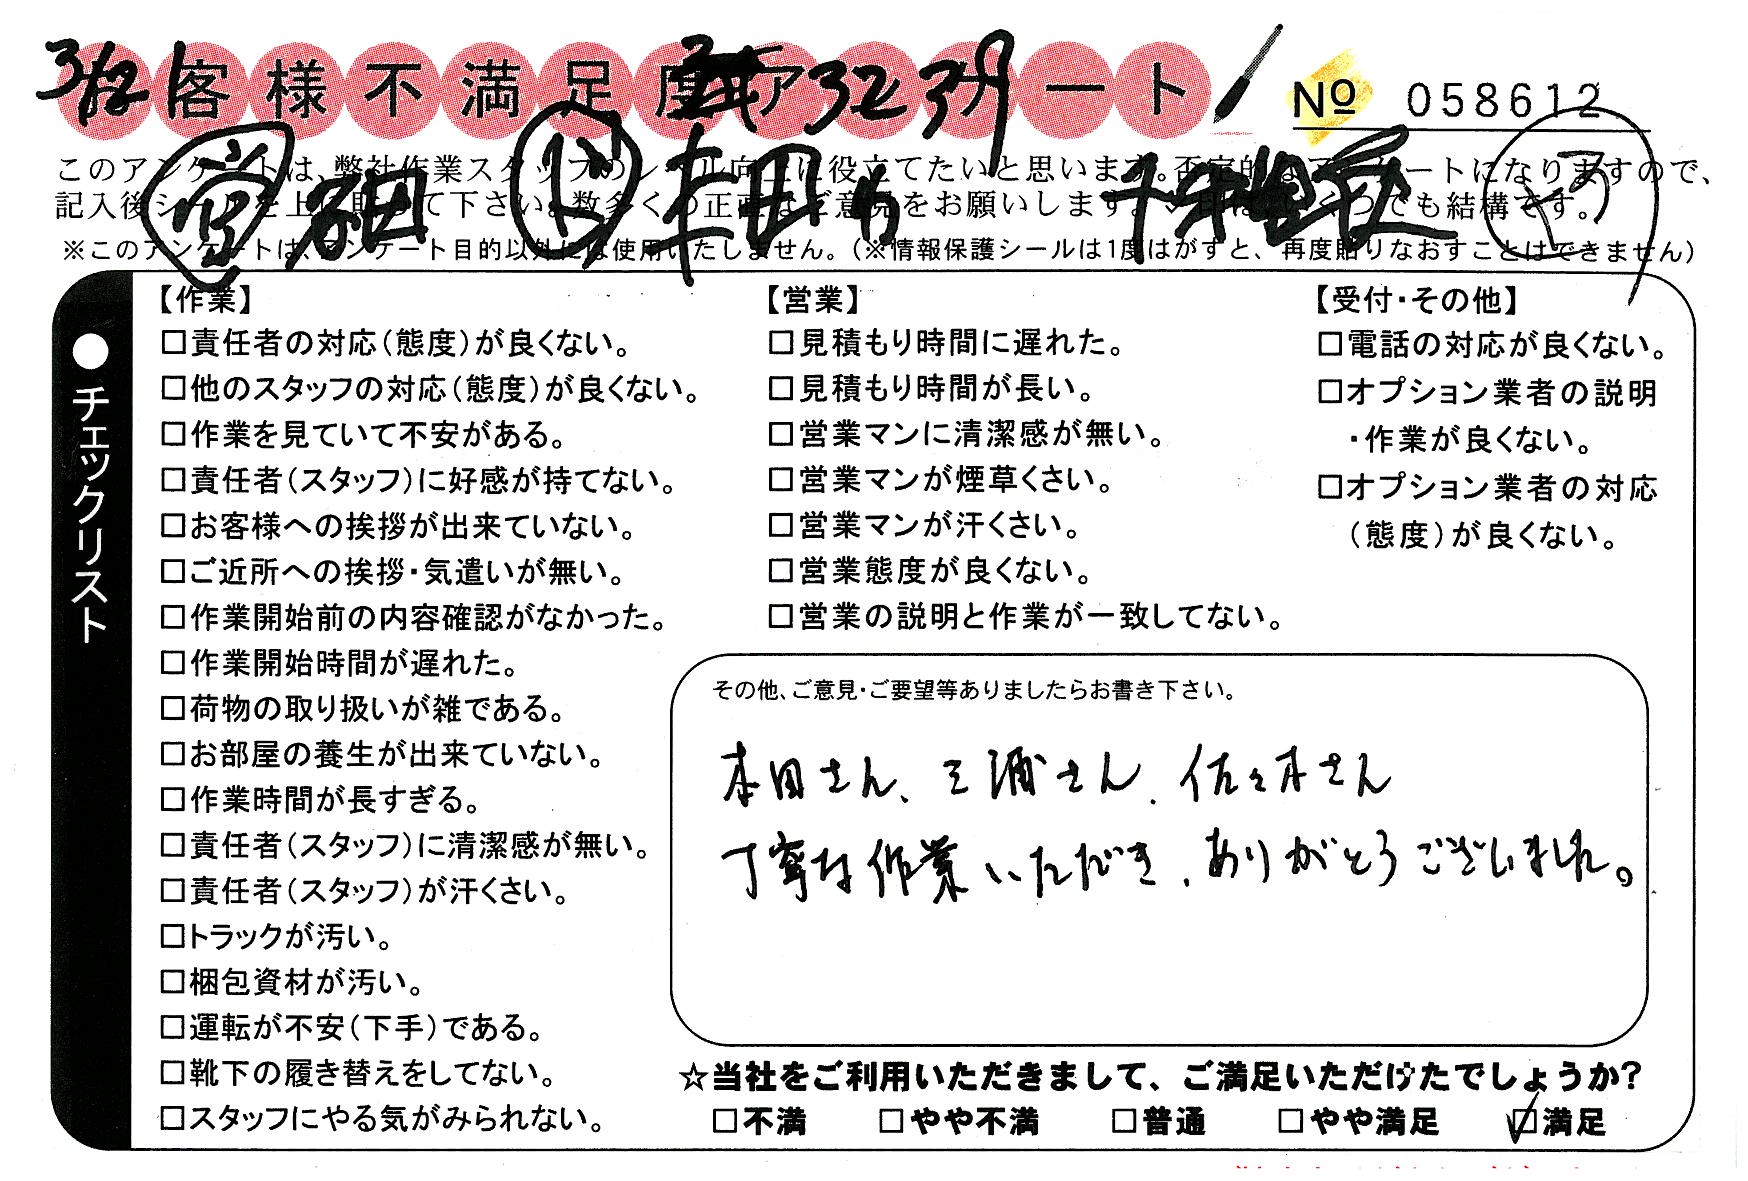 3/12 お客様不満足度アンケート 3239 № 058612
このアンケートは、弊社作業スタッフのレベル向上に役立てたいと思います。否定的なアンケートになりますので、
記入後シールを上に貼って下さい。数多くの正直なご意見をお願いします。✓印はいくつでも結構です。
※このアンケートは、アンケート目的以外には使用いたしません。(※情報保護シールは1度はがすと、再度貼りなおすことはできません)
●チェックリスト
【作業】
□責任者の対応(態度)が良くない。
□他のスタッフの対応(態度)が良くない。
□作業を見ていて不安がある。
□責任者(スタッフ)に好感が持てない。
□お客様への挨拶が出来ていない。
□ご近所への挨拶・気遣いが無い。
□作業開始前の内容確認がなかった。
□作業開始時間が遅れた。
□荷物の取り扱いが雑である。
□お部屋の養生が出来ていない。
□作業時間が長すぎる。
□責任者(スタッフ)に清潔感が無い。
□責任者(スタッフ)が汗くさい。
□トラックが汚い。
□梱包資材が汚い。
□運転が不安(下手)である。
□靴下の履き替えをしてない。
□スタッフにやる気がみられない。
【営業】
□見積もり時間に遅れた。
□見積もり時間が長い。
□営業マンに清潔感が無い。
□営業マンが煙草くさい。
□営業マンが汗くさい。
□営業態度が良くない。
□営業の説明と作業が一致してない。
【受付・その他】
□電話の対応が良くない。
□オプション業者の説明
・作業が良くない。
□オプション業者の対応
(態度)が良くない。
その他、ご意見・ご要望等ありましたらお書き下さい。
本田さん、三浦さん、佐々木さん
丁寧な作業いただき、ありがとうございました。
☆当社をご利用いただきまして、ご満足いただけたでしょうか?
□不満 □やや不満 □普通 □やや満足 ☑満足